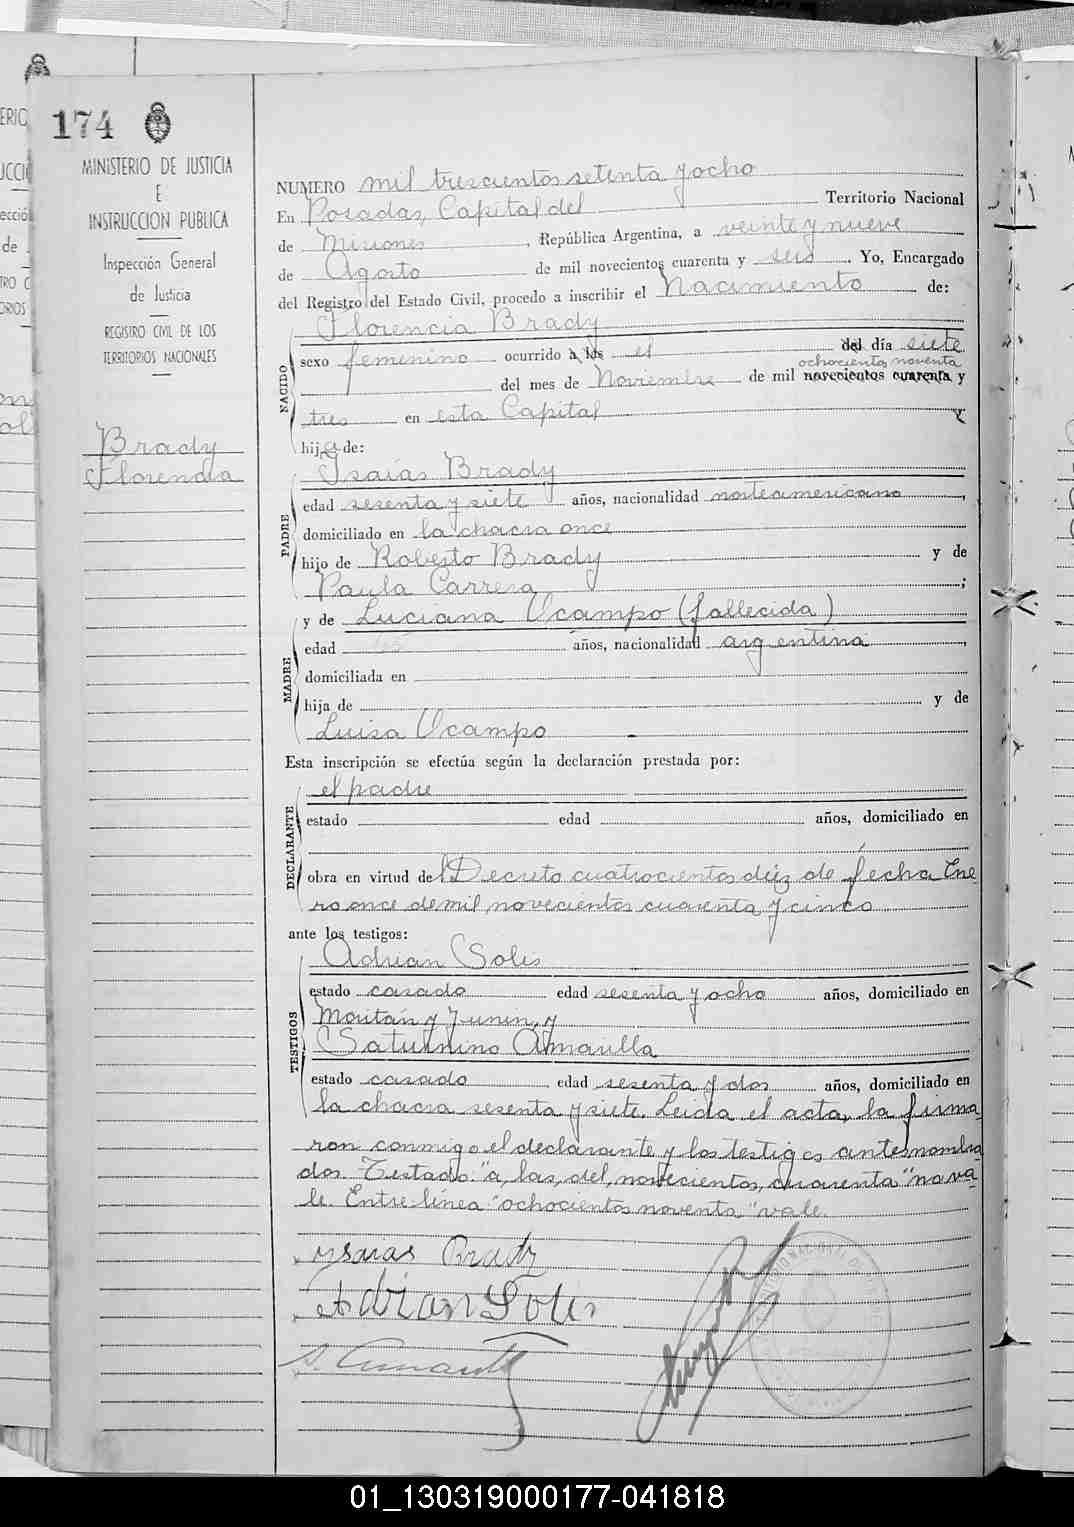 174
MINISTERIO DE JUSTICIA
E
INSTRUCCION PUBLICA
Inspección General
de Justicia
REGISTRO CIVIL DE LOS
TERRITORIOS NACIONALES
Brady
Florencia
NUMERO mil trescientos setenta y ocho
En Posadas, Capital del Territorio Nacional
de Misiones, República Argentina, a veinte y nueve
de Agosto de mil novecientos cuarenta y seis. Yo, Encargado
del Registro del Estado Civil, procedo a inscribir el Nacimiento de:
NACIDO
Florencia Brady
sexo femenino ocurrido a las el del día siete
ochocientos noventa
del mes de Noviembre de mil novecientos cuarenta y
tres en esta Capital y
hija de:
PADRE
Isaías Brady
edad sesenta y siete años, nacionalidad norteamericano,
domiciliado en la chacra once
hijo de Roberto Brady y de
Paula Carrera;
MADRE
y de Luciana Ocampo (fallecida)
edad años, nacionalidad argentina,
domiciliada en
hija de y de
Luisa Ocampo
Esta inscripción se efectúa según la declaración prestada por:
DECLARANTE
el padre
estado edad años, domiciliado en
obra en virtud del Decreto cuatrocientos diez de fecha Ene
ro once de mil novecientos cuarenta y cinco
ante los testigos:
TESTIGOS
Adrián Solis
estado casado edad sesenta y ocho años, domiciliado en
y Junin, y
Saturnino Amarilla
estado casado edad sesenta y dos años, domiciliado en
la chacra sesenta y siete. Leida el acta, la firma
ron conmigo el declarante y los testigos antes nombra
dos. Testado: "a, las, del, novecientos, cuarenta" no va-
le. Entre línea: "ochocientos noventa" vale.
Ysaias Brady
Adrian Solis
01_130319000177-041818